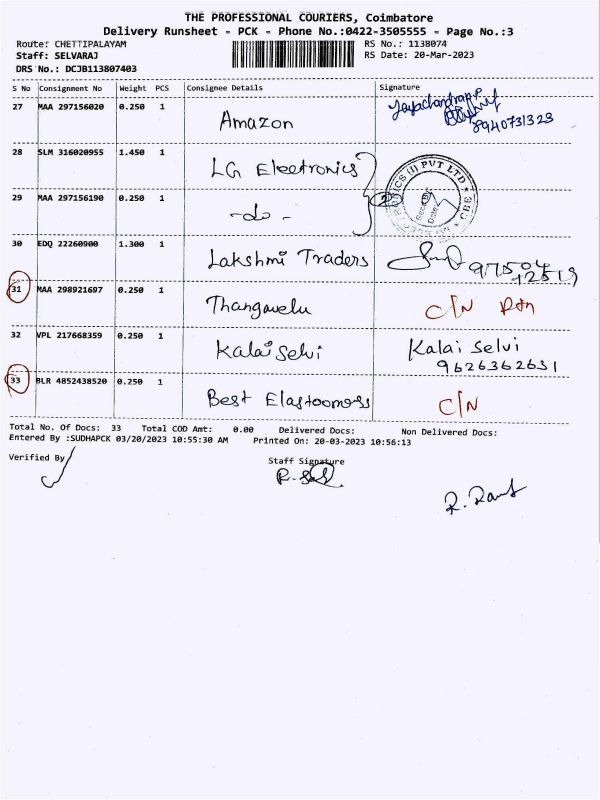 THE PROFESSIONAL COURIERS, Coimbatore
Delivery Runsheet - PCK - Phone No.:0422-3505555 - Page No.:3
Route: CHETTIPALAYAM RS No.: 1138074
Staff: SELVARAJ RS Date: 20-Mar-2023
DRS No.: DCJB113807403
S No Consignment No Weight PCS Consignee Details Signature
27 MAA 297156020 0.250 1 Amazon
8940731323
28 SLM 316020955 1.450 1 LG Electronics
(I) PVT LTD CBE
29 MAA 297156190 0.250 1 -do-
30 EDQ 22260900 1.300 1 Lakshmi Traders 97504 12519
31 MAA 298921697 0.250 1 Thangavelu C/N Rtn
32 VPL 217668359 0.250 1 Kalai Selvi Kalai Selvi
9626362631
33 BLR 4852438520 0.250 1 Best Elastoomers C/N
Total No. Of Docs: 33 Total COD Amt: 0.00 Delivered Docs: Non Delivered Docs:
Entered By :SUDHAPCK 03/20/2023 10:55:30 AM Printed On: 20-03-2023 10:56:13
Verified By Staff Signature